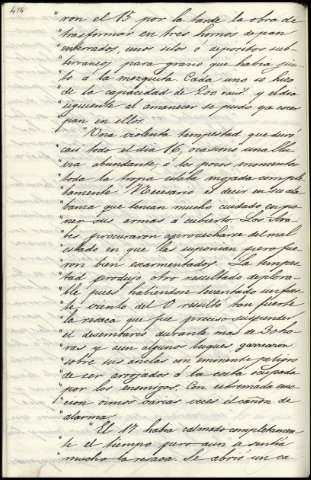 474
"ron el 15 por la tarde la obra de
"trasformar en tres hornos de pan
"enterrados, unos silos ó depósitos sub-
"terraneos para grano que habia jun-
"to á la mezquita Cada uno se hizo
"de la capacidad de 200 rac.s y el dia
"siguiente al amanecer se pudo ya cocer
"pan en ellos.
"Una violenta tempestad que duró
"casi todo el dia 16, ocasionó una llu-
"via abundante, á los pocos momentos
"toda la tropa estaba mojada comple-
"tamente. Necesario es decir en su ala-
"banza que tenian mucho cuidado en po-
"ner sus armas á cubierto. Los Ára-
"bes procuraron aprovecharse del mal
"estado en que la suponian pero fue-
"ron bien escarmentados. La tempes-
"tad produjo otro resultado deplora-
"ble pues habiendose levantado un fuer-
"te viento del O resultó tan fuerte
"la resaca que fue preciso suspender
"el desembarco durante mas de 30 ho-
"ras y aun algunos buques garrearon
"sobre sus anclas con inminente peligro
"de ser arrojados á la costa ocupada
"por los enemigos. Con estremada
"cion oimos varias veces el cañon de
"alarma.
"El 17 habia calmado completamen-
"te el tiempo pero aun se sentia
"mucho la resaca. Se abrió un ca